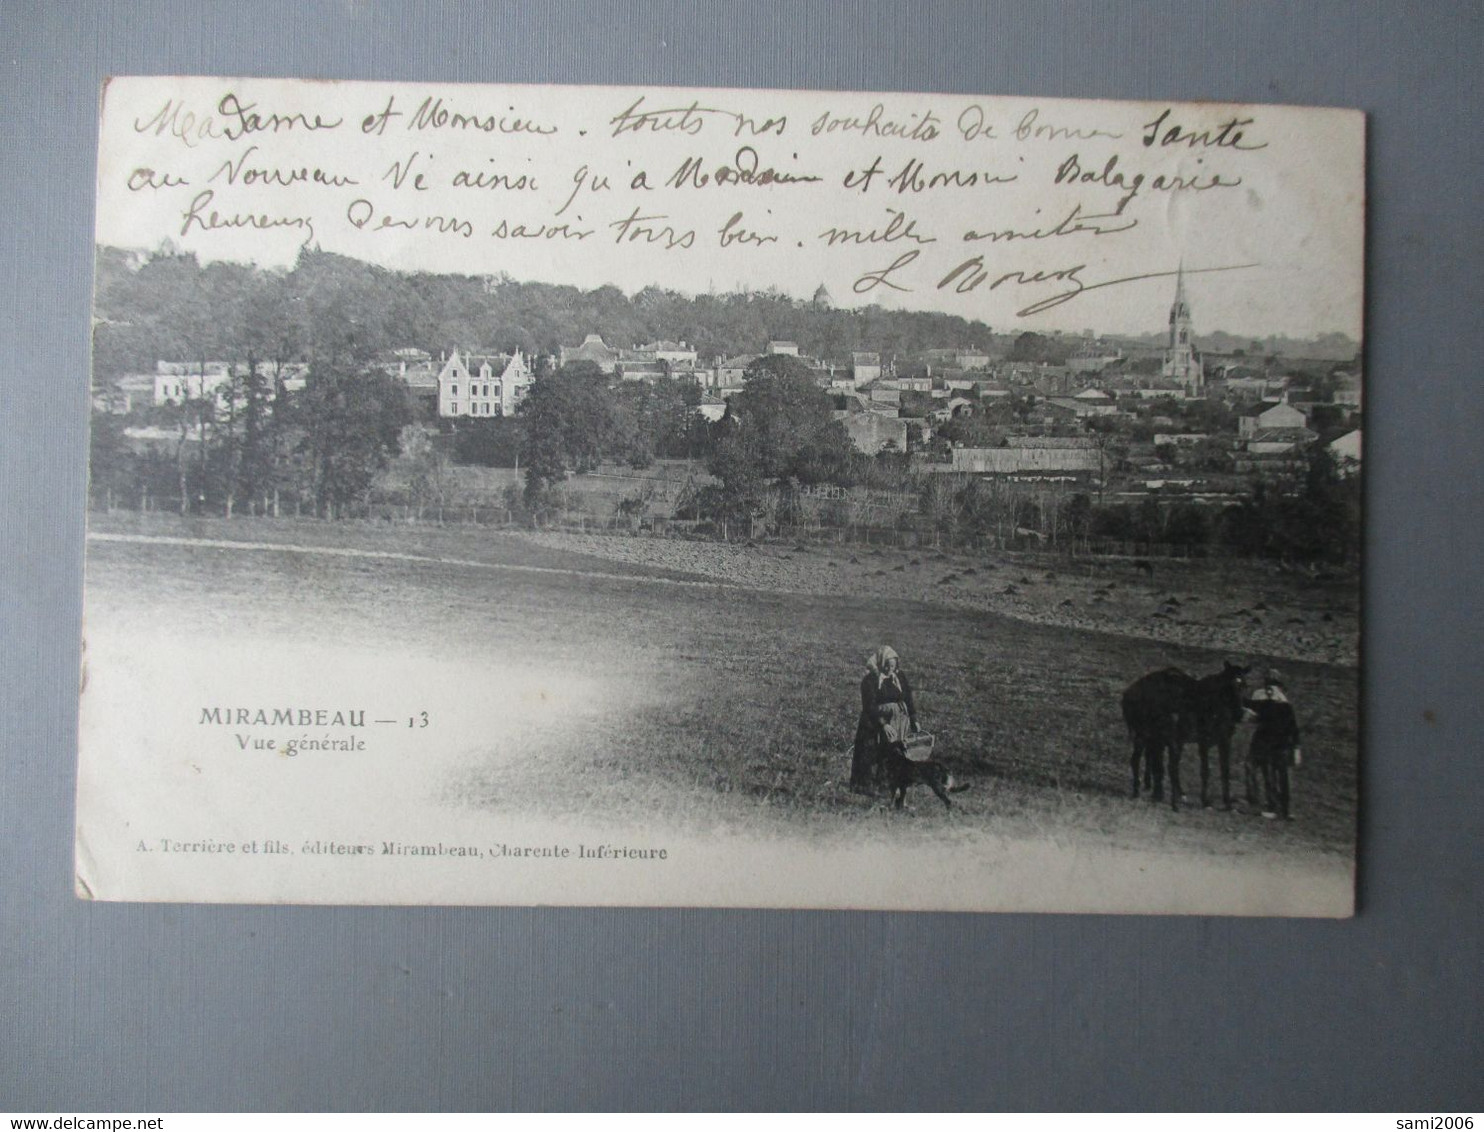 Madame et Monsieu. touts nos souhaits de bonne Santé
au Nouveau Né ainsi qu'a et Monsieu Balagarie
heureux De vous savoir tous bien. mille amities
L
MIRAMBEAU — 13
Vue générale
A. Terrière et fils, éditeurs Mirambeau, Charente-Inférieure
sami2006